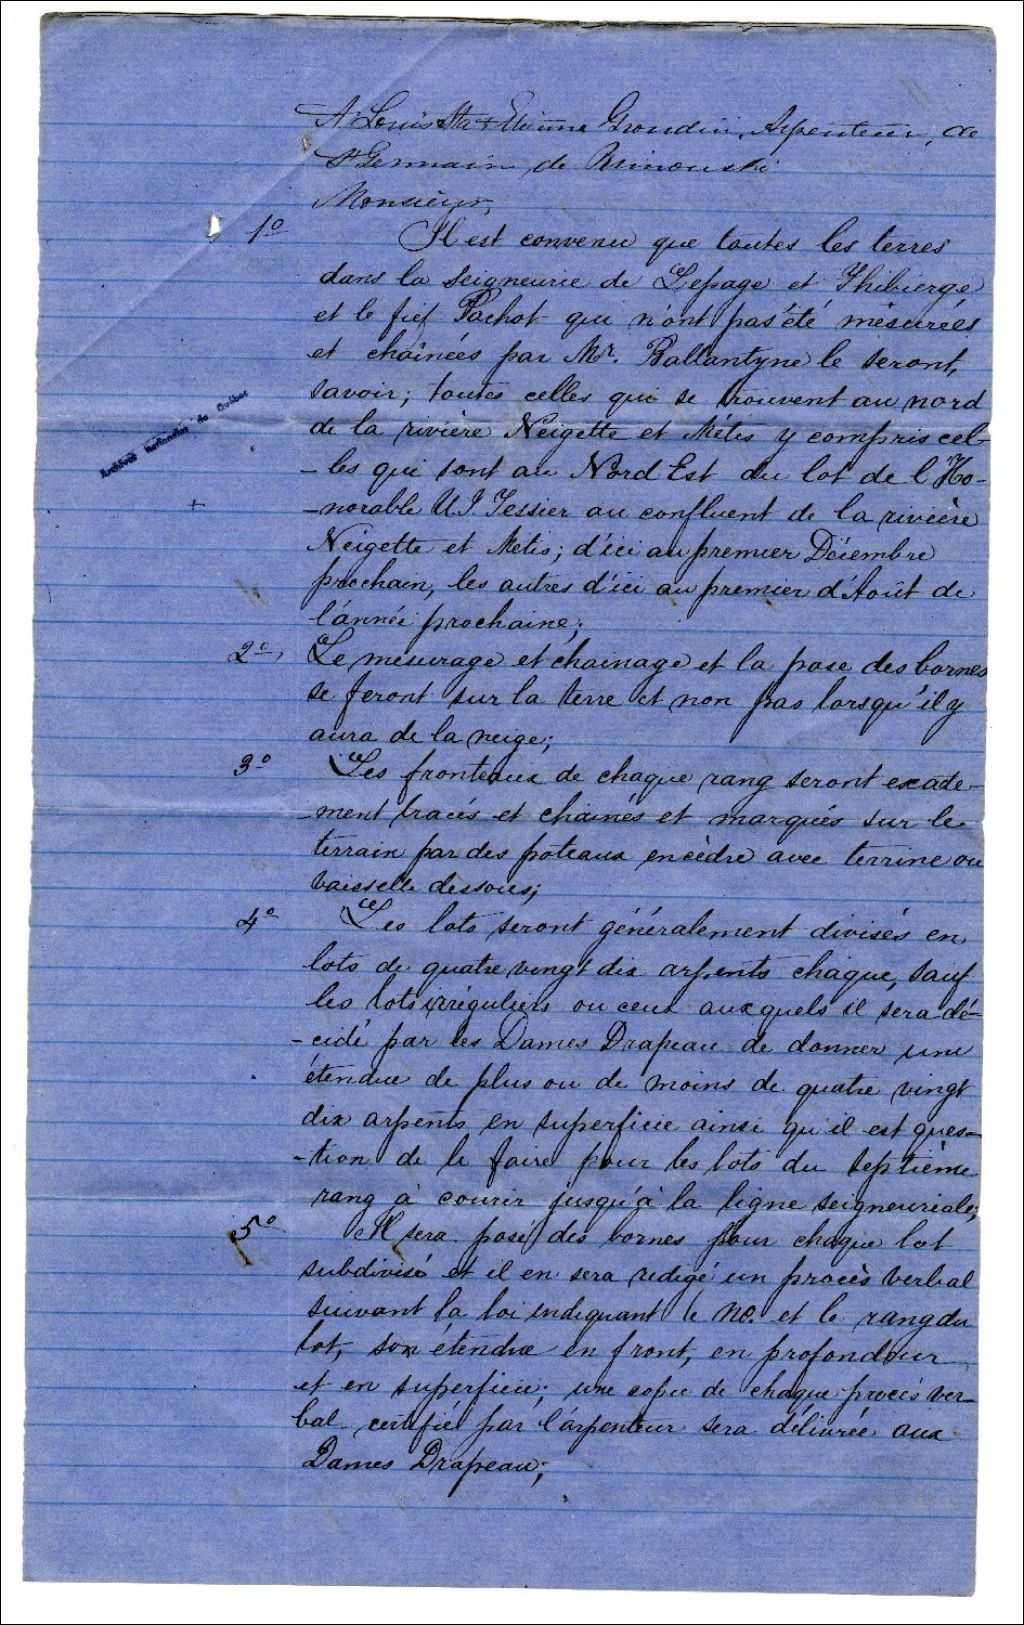 A Louis Etienne Grondin, Arpenteur, de
St Germain de Rimouski
Monsieur,
1o Il est convenu que toutes les terres
dans la seigneurie de Lepage et Thibierge
et le fief Pachot qui n'ont pas été mésurées
et chaînées par Mr. Ballantyne le seront,
savoir; toutes celles qui se trouvent au nord
de la rivière Neigette et Métis y compris cel-
-les qui sont au Nord Est du lot de l'Ho-
-norable U. J Tessier au confluent de la rivière
Neigette et Metis; d'ici au premier Décembre
prochain, les autres d'ici au premier d'Août de
l'année prochaine;
2o, Le mesurage et chainage et la pose des bornes
se feront sur la terre et non pas lorsqu'il y
aura de la neige;
3o Les fronteaux de chaque rang seront exacte-
-ment tracés et chainés et marqués sur le
terrain par des poteaux en cèdre avec terrine ou
vaisselle dessous;
4o Les lots seront généralement divisés en
lots de quatre vingt dix arpents chaque, sauf
les lots irréguliers ou ceux aux quels il sera dé-
-cidé par les Dames Drapeau de donner une
étendue de plus ou de moins de quatre vingt
dix arpents en superficie ainsi qu'il est ques-
-tion de le faire pour les lots du septième
rang à courir jusqu'à la ligne seigneuriale;
5o Il sera posé des bornes pour chaque lot
subdivisé et il en sera redigé un procès verbal
suivant la loi indiquant le No. et le rang du
lot, son étendue en front, en profondeur
et en superficie; une copie de chaque procès ver-
bal certifié par l'arpenteur sera délivrée aux
Dames Drapeau;
Archives nationales du Québec